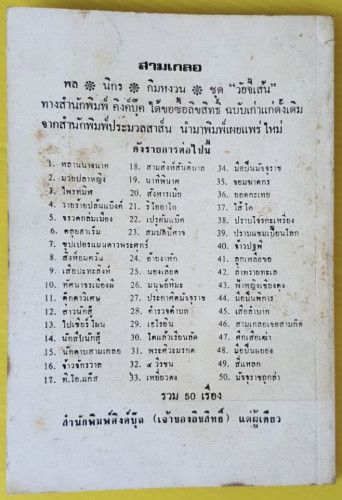 สามเกลอ
พล ❋ นิกร ❋ กิมหงวน ❋ ชุด "วัยจี๊เส้น"
ทางสำนักพิมพ์ คิงค์บุ๊ค ได้ขอซื้อลิขสิทธิ์ ฉบับเก่าแก่ดั้งเดิม
จากสำนักพิมพ์ประมวลสาส์น นำมาพิมพ์เผยแพร่ใหม่
ดังรายการต่อไปนี้
1. หลานนางนาค 18. สามสิงห์สันติบาล 34. มือปืนมัจจุราช
2. มวยปลาหญิง 19. นาทีพินาศ 35. จอมฆาตกร
3. ไพรทมิฬ 20. สังหารเมีย 36. ยอดกะเทย
4. วายร้ายปล้นแบ๊งค์ 21. รีไออาโก 37. ไส้โค
5. จรวดถล่มเมือง 22. เปรตัมแบ๊ค 38. ปราบโจรกะเหรี่ยง
6. คลุยสาเริ่ม 23. สมบัติปีศาจ 39. ปราบแชมเปี้ยนโลก
7. ซุปเปอร์แมนดาวพระศุกร์ 40. จ้าวปฐพี
8. สิงห์อมควัน 24. อ้ายงาหัก 41. ลูกเหลือขอ
9. เสือปะทะสิงห์ 25. นองเลือด 42. ล่าพรายทะเล
10. ทัศนาจรเมืองผี 26. มนุษย์หิมะ 43. ฟ้าหญิงเชียงตุง
11. ศึกดาวเศษ 27. ประกาศิตมัจจุราช 44. มือปืนพิการ
12. สาวนักสู้ 28. ตำรวจตำบล 45. เสือลำบาก
13. ไปเชียร์โฆน 29. เฮโรอีน 46. สามเกลอเจอสามกิ๊ก
14. นักสืบนักสู้ 30. โดดแล้วเรียนลัด 47. ศึกเสือเฒ่า
15. นักดาบสามเกลอ 31. พระศิวะมรกต 48. มือปืนผยอง
16. จ้าวจักรวาล 32. ๔ วีรชน 49. สี่แหลก
17. ที.โอ.แก๊ส 33. เหยี่ยวดง 50. มัจจุราชถูกล่า
รวม 50 เรื่อง
สำนักพิมพ์คิงค์บุ๊ค (เจ้าของลิขสิทธิ์) แต่ผู้เดียว